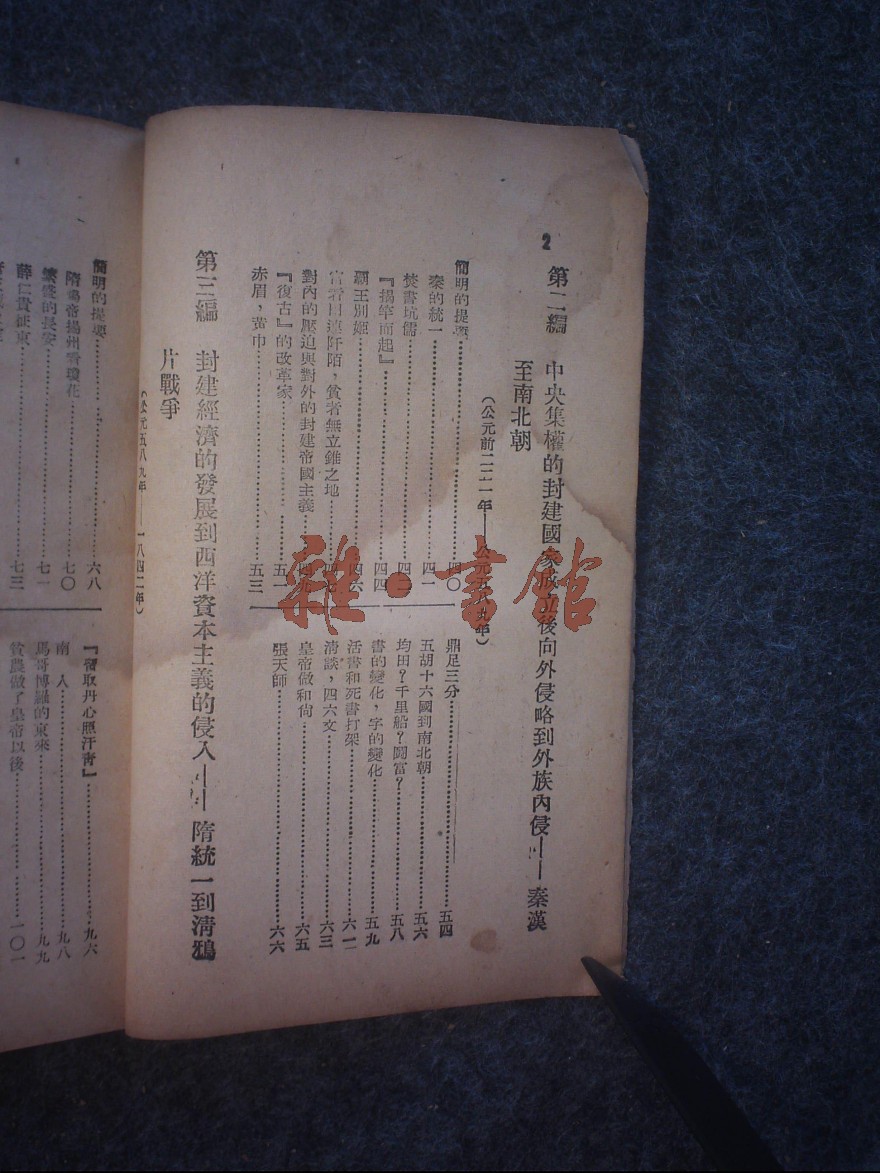 2
第二編　中央集權的封建國家成立後向外侵略到外族內侵——秦漢
至南北朝
（公元前二二一年——公元五八九年）
簡明的提要…………四〇
秦的統一…………四一
焚書坑儒…………四二
『揭竿而起』…………四四
霸王別姬…………四六
富者田連阡陌，貧者無立錐之地…………四七
對內的壓迫與對外的封建帝國主義…………四九
『復古』的改革家…………五一
赤眉，黃巾…………五三
鼎足三分…………五四
五胡十六國到南北朝…………五六
均田？千里船？鬪富？…………五八
書的變化，字的變化…………五九
活書和死書打架…………六一
清談，四六文…………六三
皇帝做和尙…………六五
張天師…………六六
第三編　封建經濟的發展到西洋資本主義的侵入——隋統一到清鴉
片戰爭
（公元五八九年——一八四二年）
簡明的提要…………六八
隋煬帝揚州看瓊花…………七〇
繁盛的長安…………七一
薛仁貴征東…………七三
『留取丹心照汗靑』…………九六
南人…………九八
馬哥博羅的東來…………九九
貧農做了皇帝以後…………一〇一
雜·書館